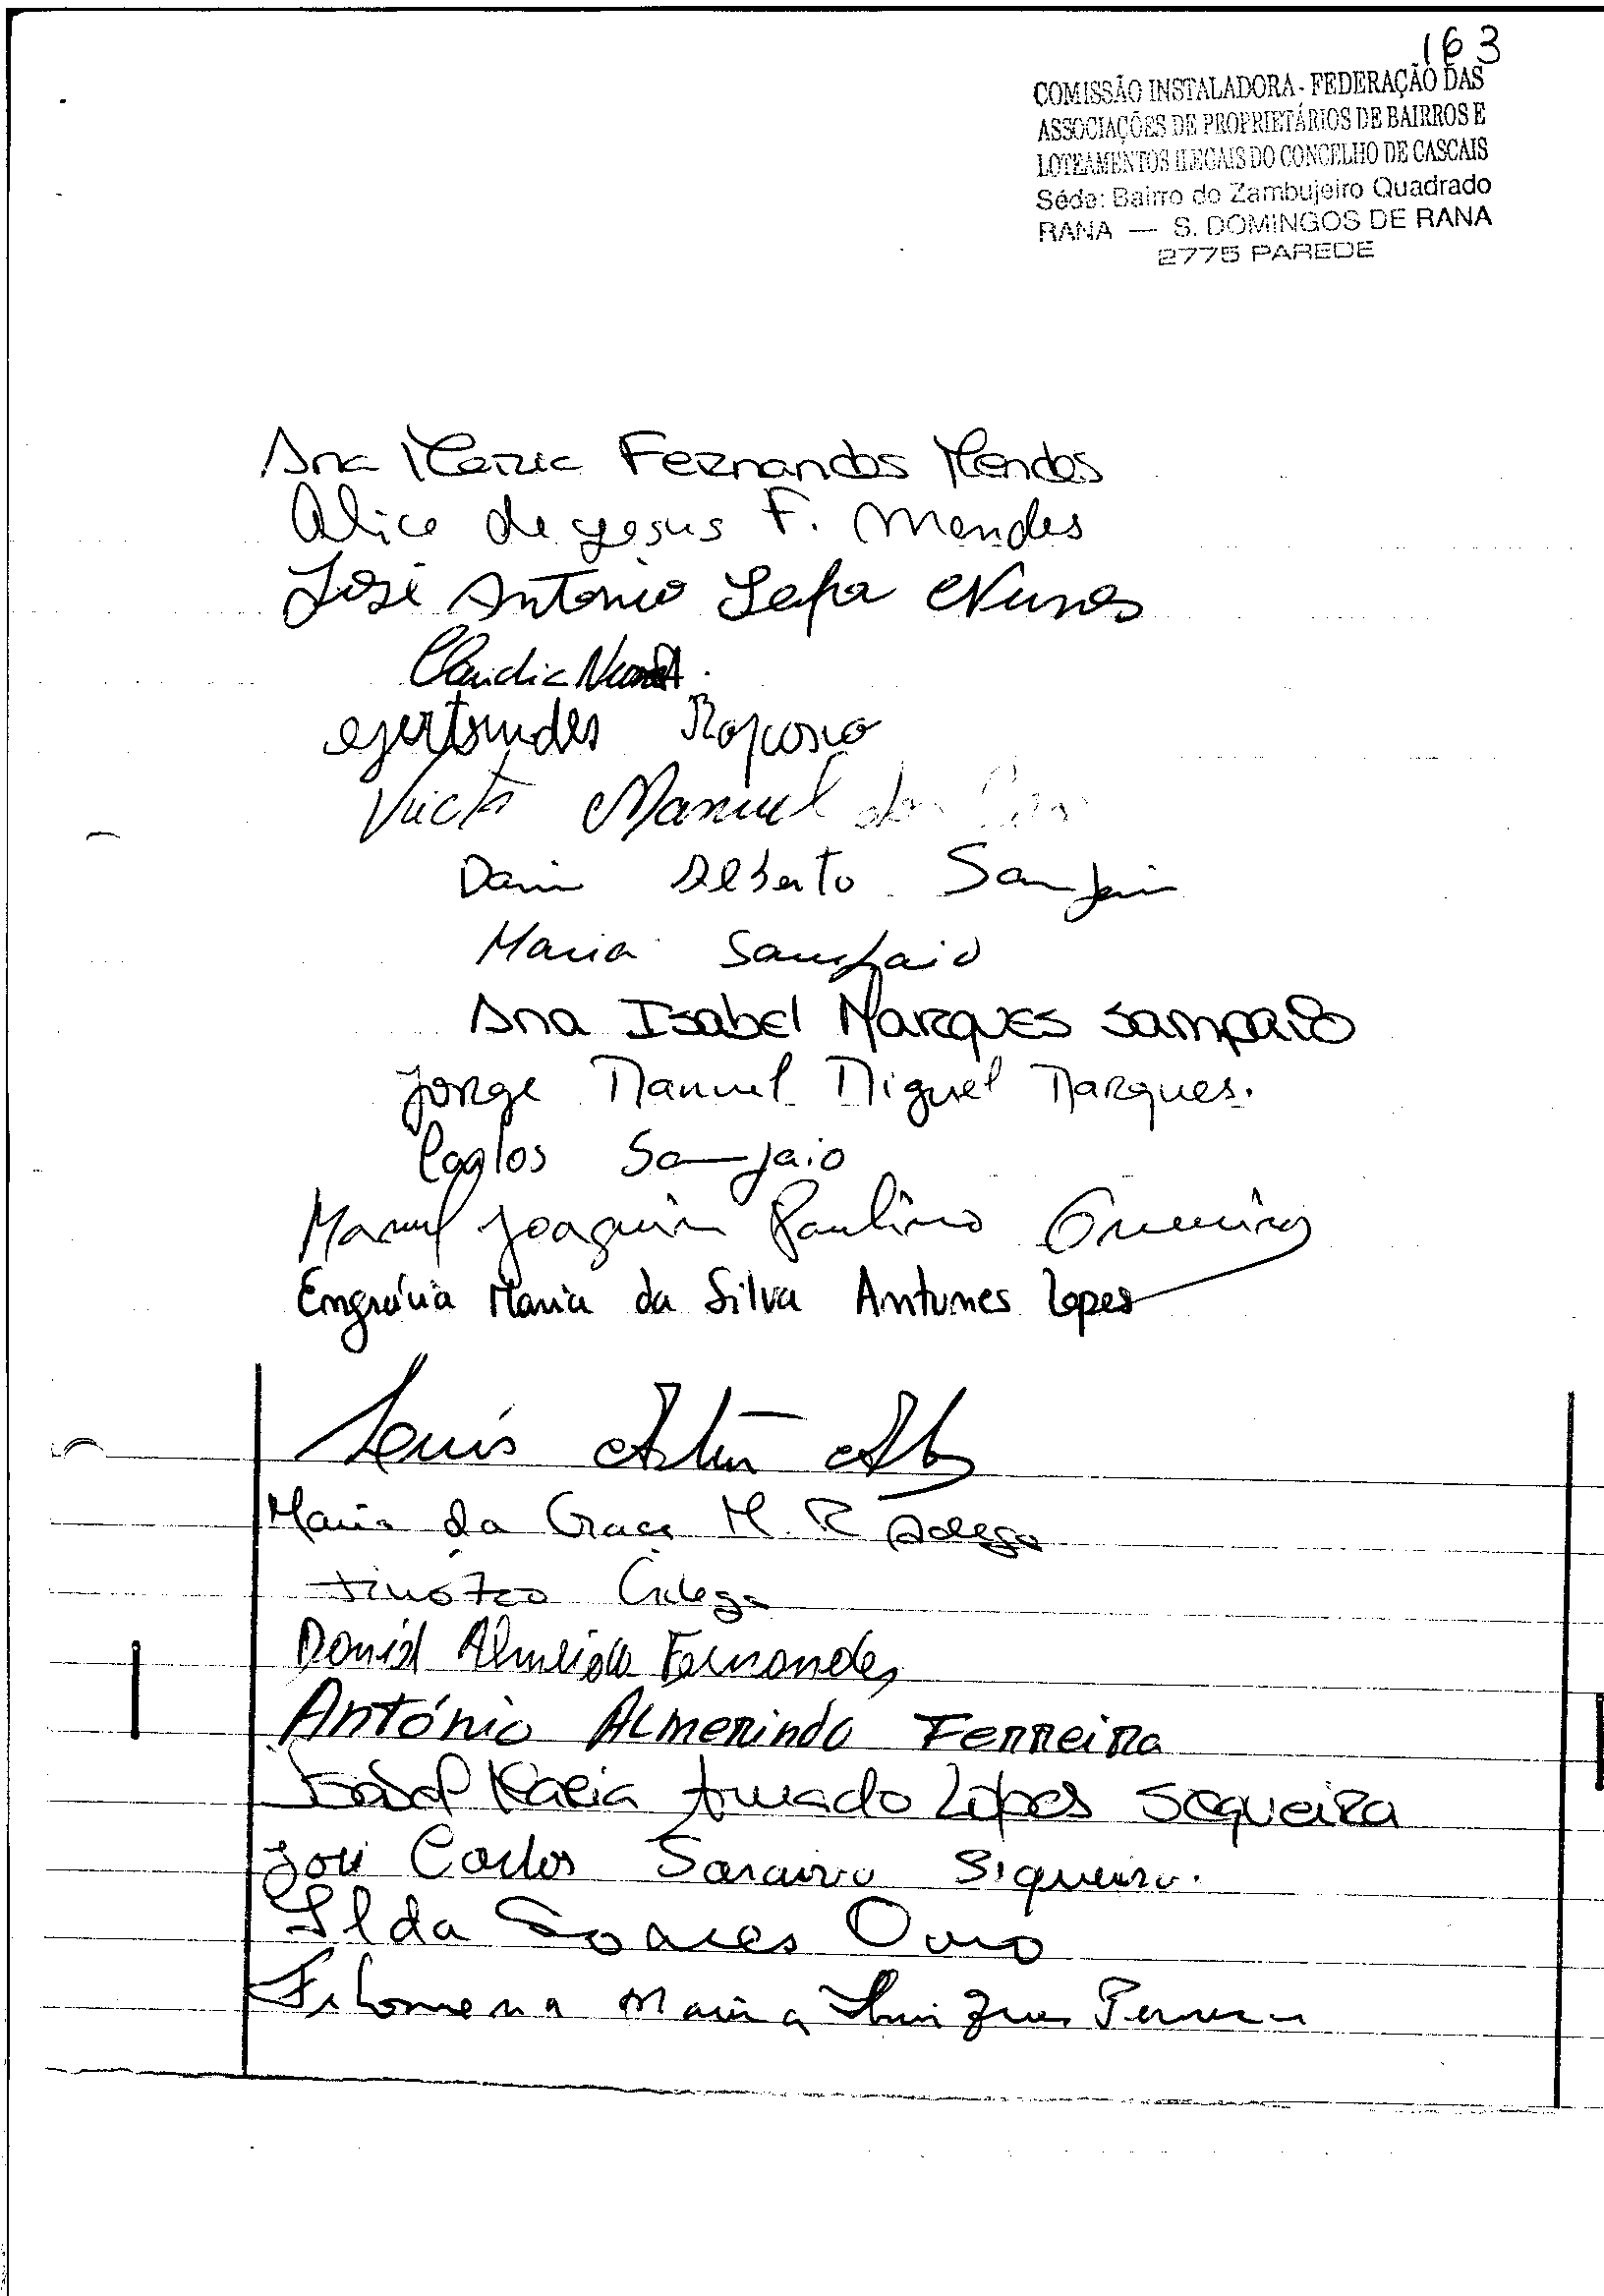 163
COMISSÃO INSTALADORA - FEDERAÇÃO DAS
ASSOCIAÇÕES DE PROPRIETÁRIOS DE BAIRROS E
LOTEAMENTOS ILEGAIS DO CONCELHO DE CASCAIS
Séde: Bairro do Zambujeiro Quadrado
RANA — S. DOMINGOS DE RANA
2775 PAREDE
Ana Maria Fernandes Mendes
Alice de Jesus F. Mendes
José António Lapa Nunes
Claudia Nunes
Gertrudes Raposo
Manuel
Alberto Sampaio
Maria Sampaio
Ana Isabel Marques Sampaio
Jorge Manuel Miguel Marques.
Carlos Sampaio
Manuel Joaquim Paulino
Engrácia Maria da Silva Antunes Lopes
Luís Artur
Maria da Graça M. R.
Daniel Almeida Fernandes
António Almerindo Ferreira
Isabel Maria Amado Lopes Sequeira
José Carlos Saraiva Siqueira.
Ilda Soares Ouro
Filomena Maria